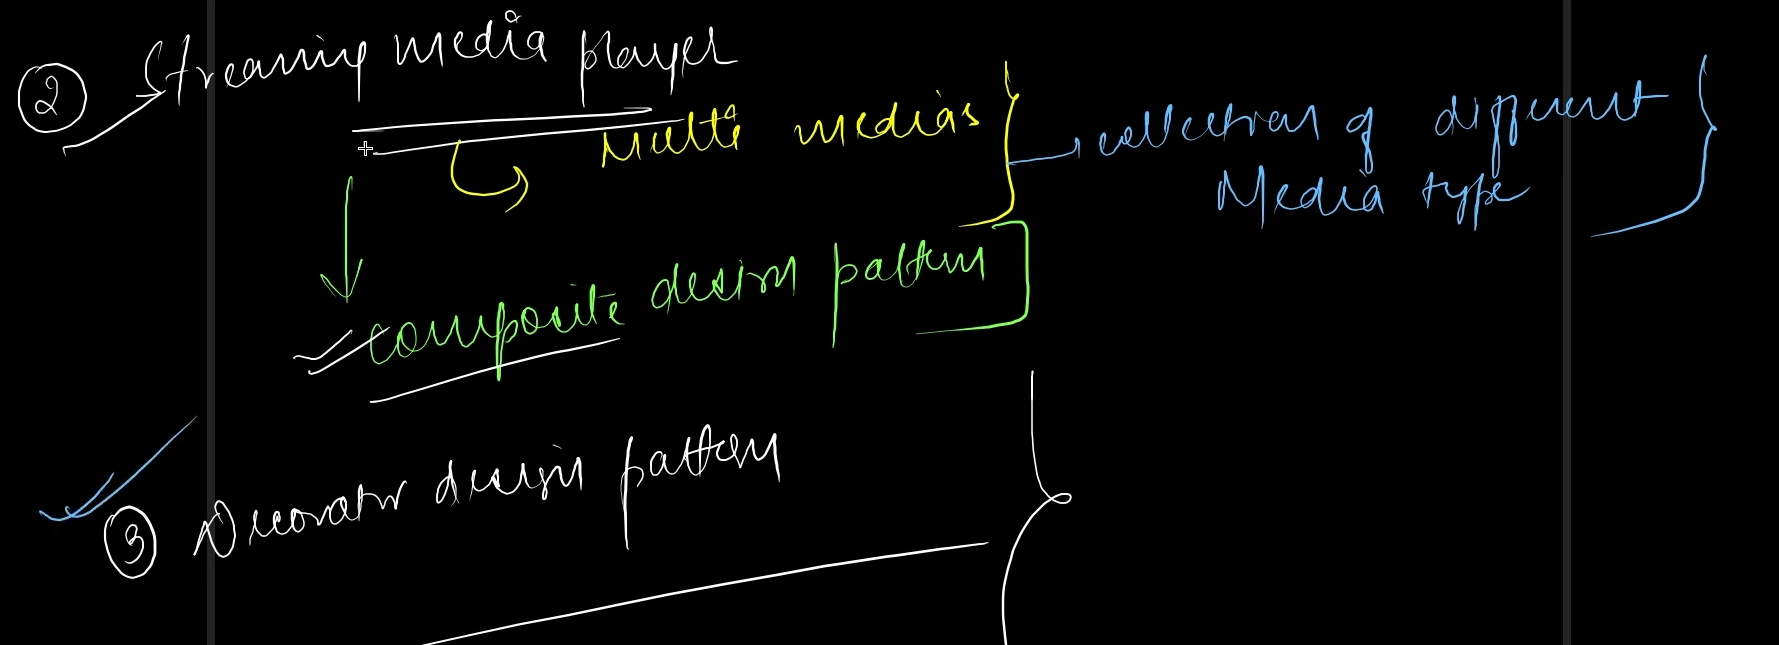 ② Streaming media player
Multi medias
collection of different
Media type
composite design pattern
③ Decorator design pattern